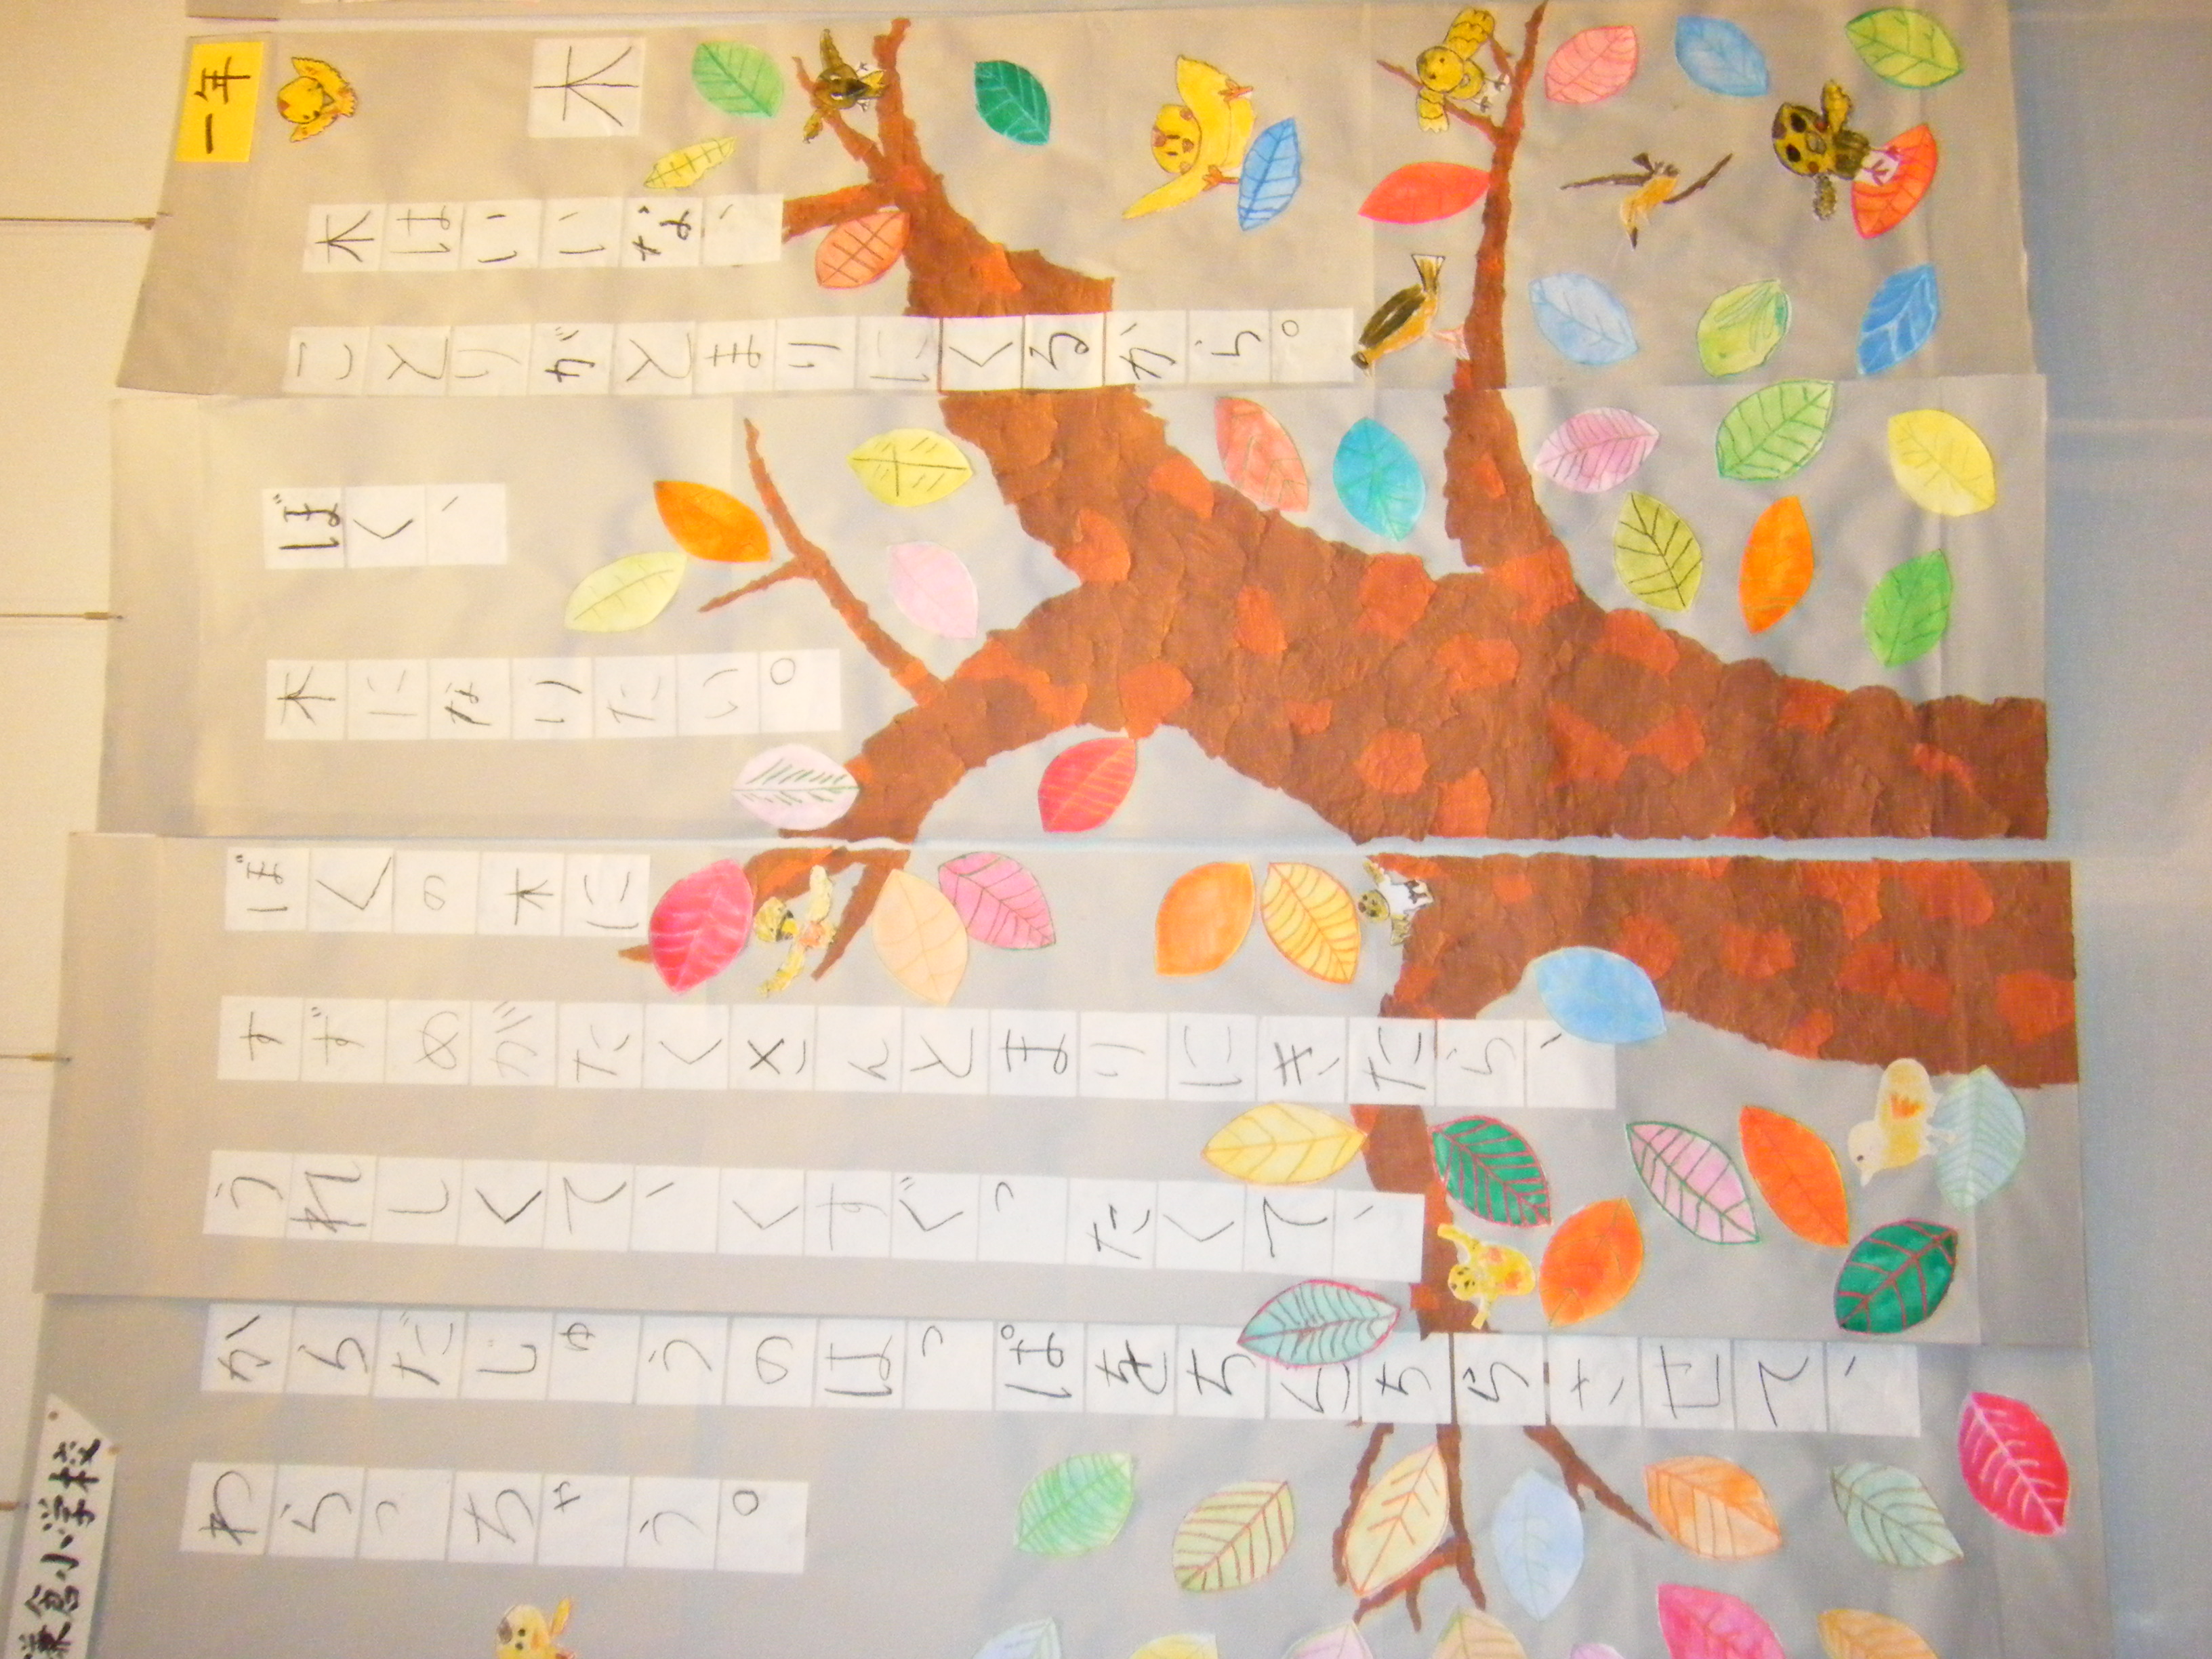 一年
木
木はいいな、
ことりがとまりにくるから。
ぼく、
木になりたい。
ぼくの木に
すずめがたくさんとまりにきたら、
うれしくて、くすぐったくて、
からだじゅうのはっぱをちらちらさせて、
わらっちゃう。
倉小学校